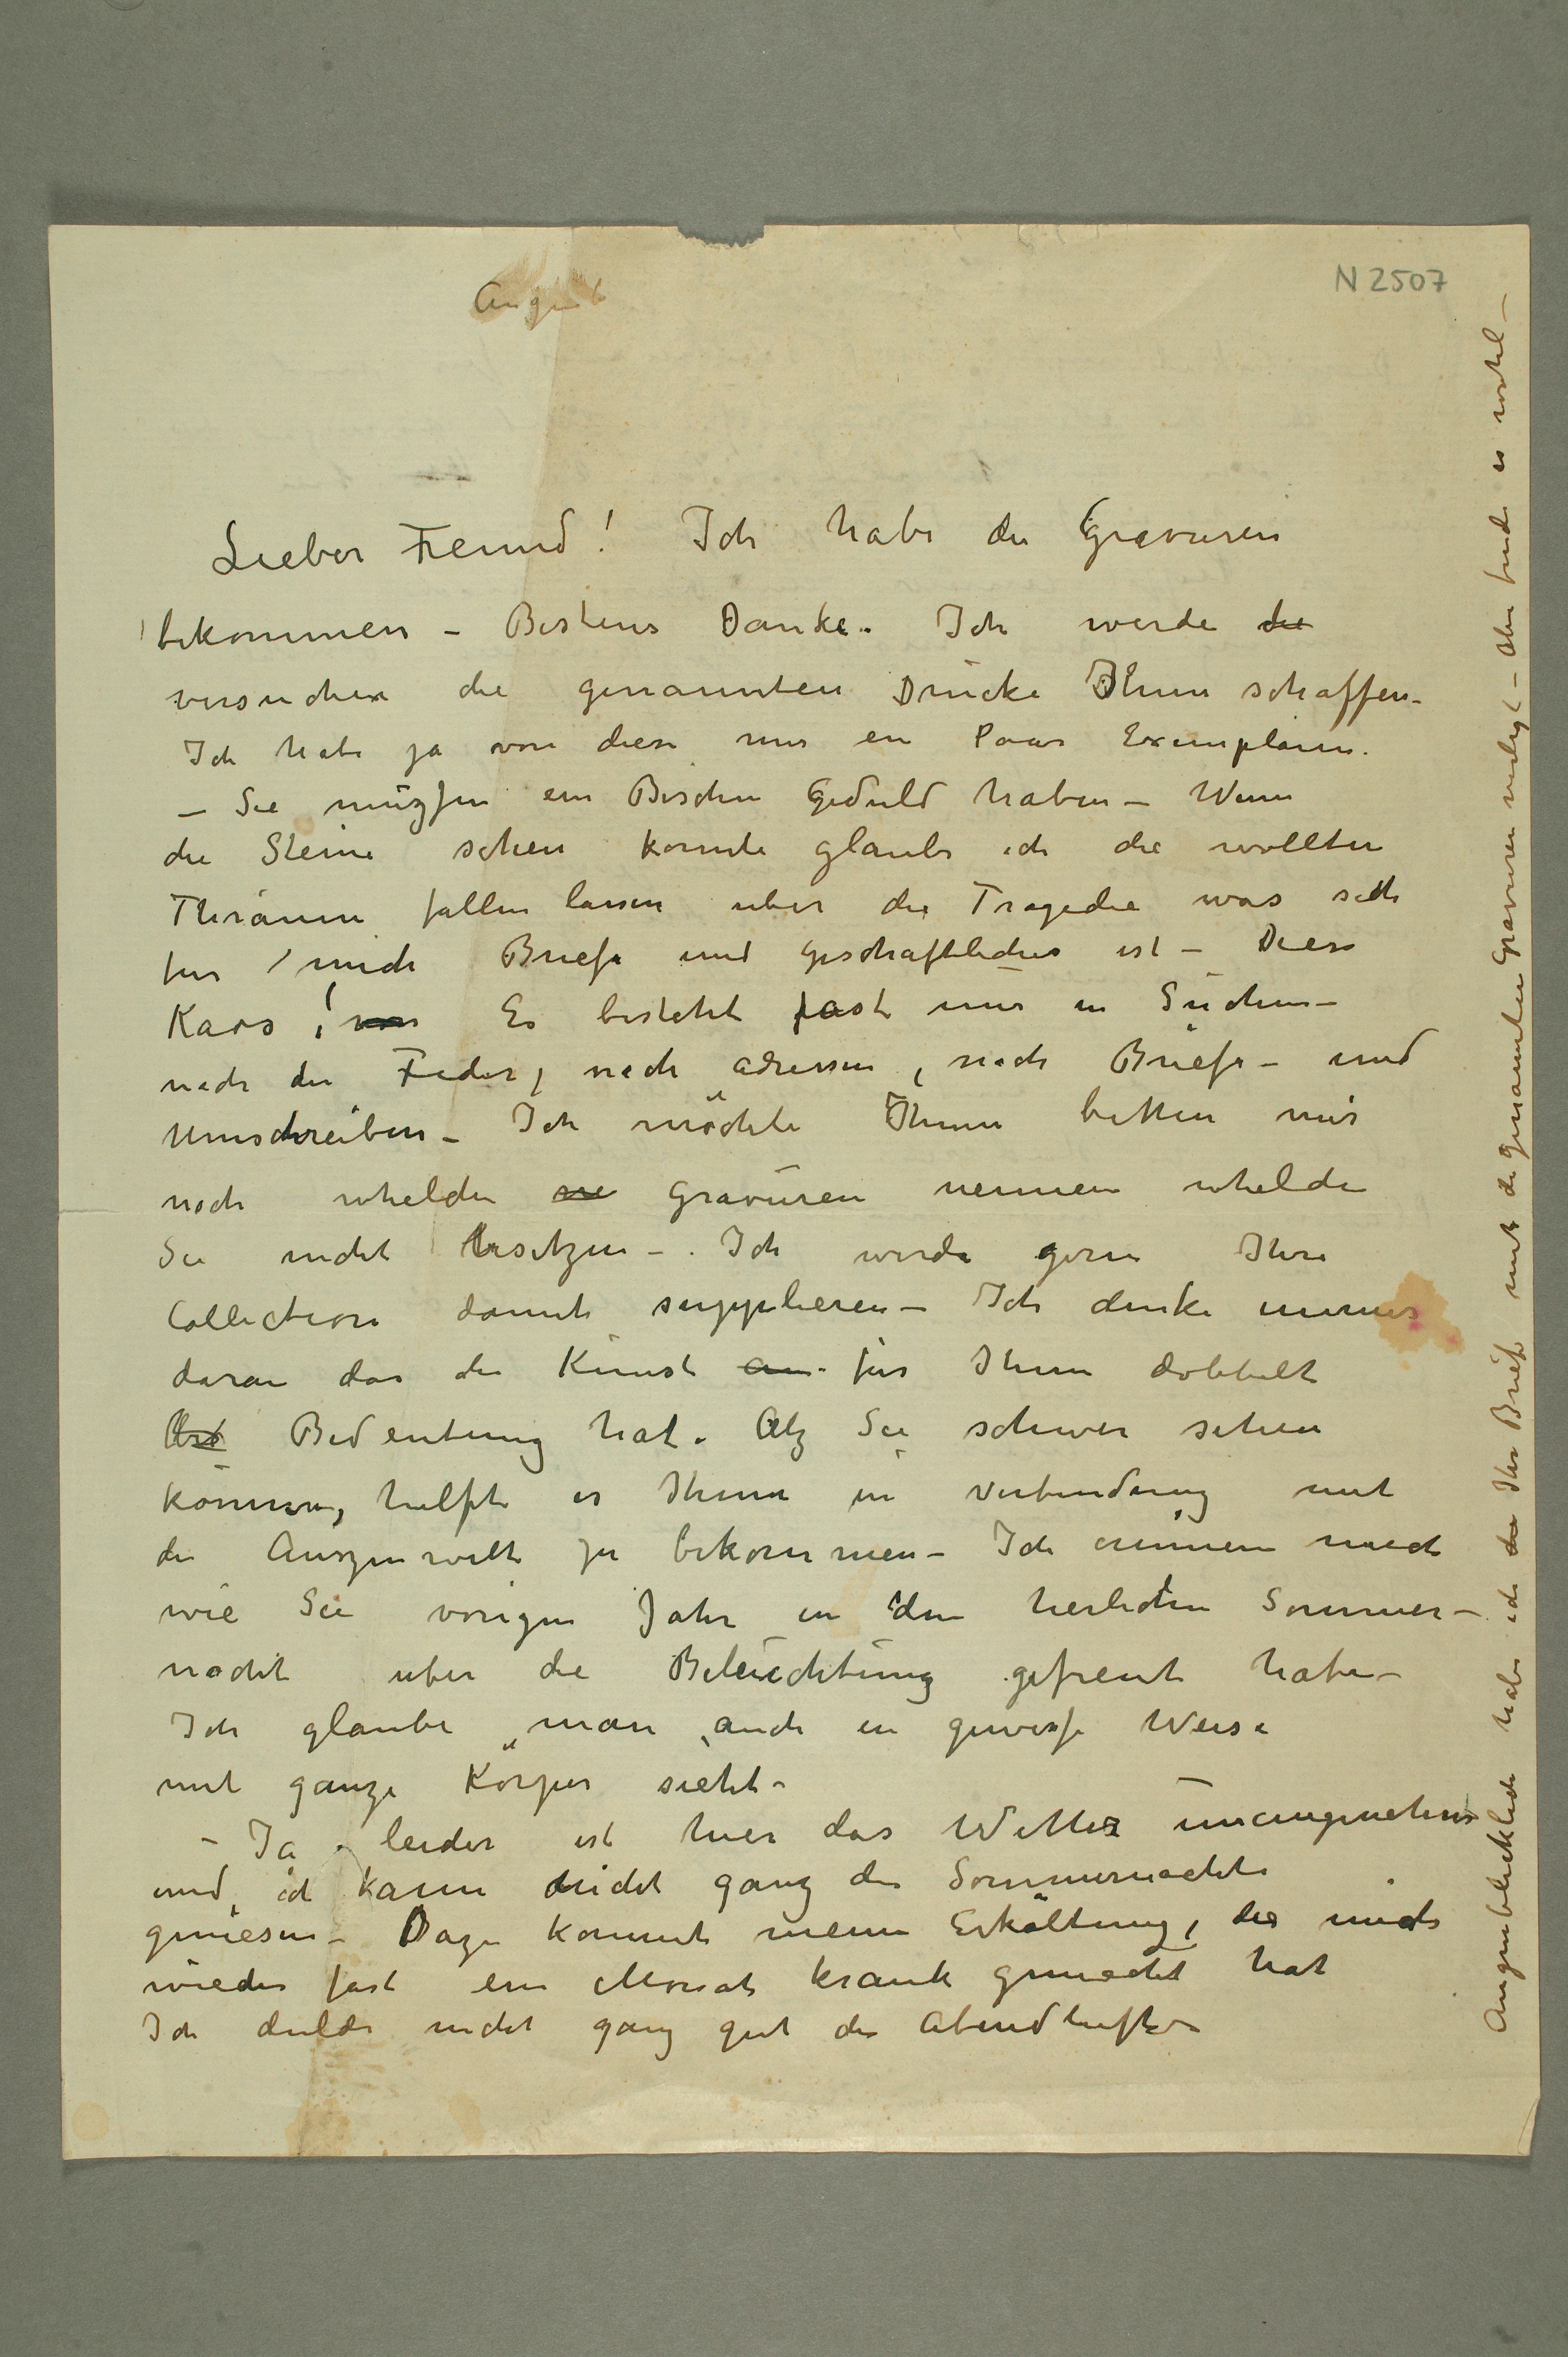 August
N 2507
Lieber Freund! Ich habe die Gravuren
bekommen – Bestens Danke. Ich werde die
versuchen die genannten Drucke Ihnen schaffen –
Ich habe ja von diese nur ein Paar Exemplaren.
– Sie müzsen ein Bischen Geduld haben – Wenn
die Steine sehen konnte glaube ich die wollten
Thränen fallen lassen uber die Tragedie was sich
fur mich Briefe und Geschaftliches ist – Diese
Kaos! Es besteht fast nur in Suchen –
nach der Feder, nach Adressen, nach Briefe – und
Umschreiben – Ich möchte Ihnen bitten mir
noch whelche Gravuren nennen whelche
Sie nicht besitzen – . Ich werde gerne Ihre
Collection damit supplieren – Ich denke immer
daran das die Kunst an für Ihnen dobbelt
Bedeutung hat. Alz Sie schwer sehen
können, hilfte es Ihnen in Verbindung mit
die Auszenwelt zu bekommen – Ich erinnere mich
wie Sie vorigen Jahr in den herlichen Sommer –
nacht uber die Beleuchtung gefreut habe –
Ich glaube man auch in gewisse Weise
mit ganze Körper sieht –
– Ja leider ist hier das Wetter unangenehm
und ich kann nicht ganz die Sommernachte
geniesen – Dazu kommt meine Erkältung, die mich
wieder fast ein Monat krank gemacht hat
Ich dulde nicht ganz gut die Abendluft –
Augenblicklich habe ich die Ihr Brief mit die genannten Gravuren verlegt – aber finde es wohl –